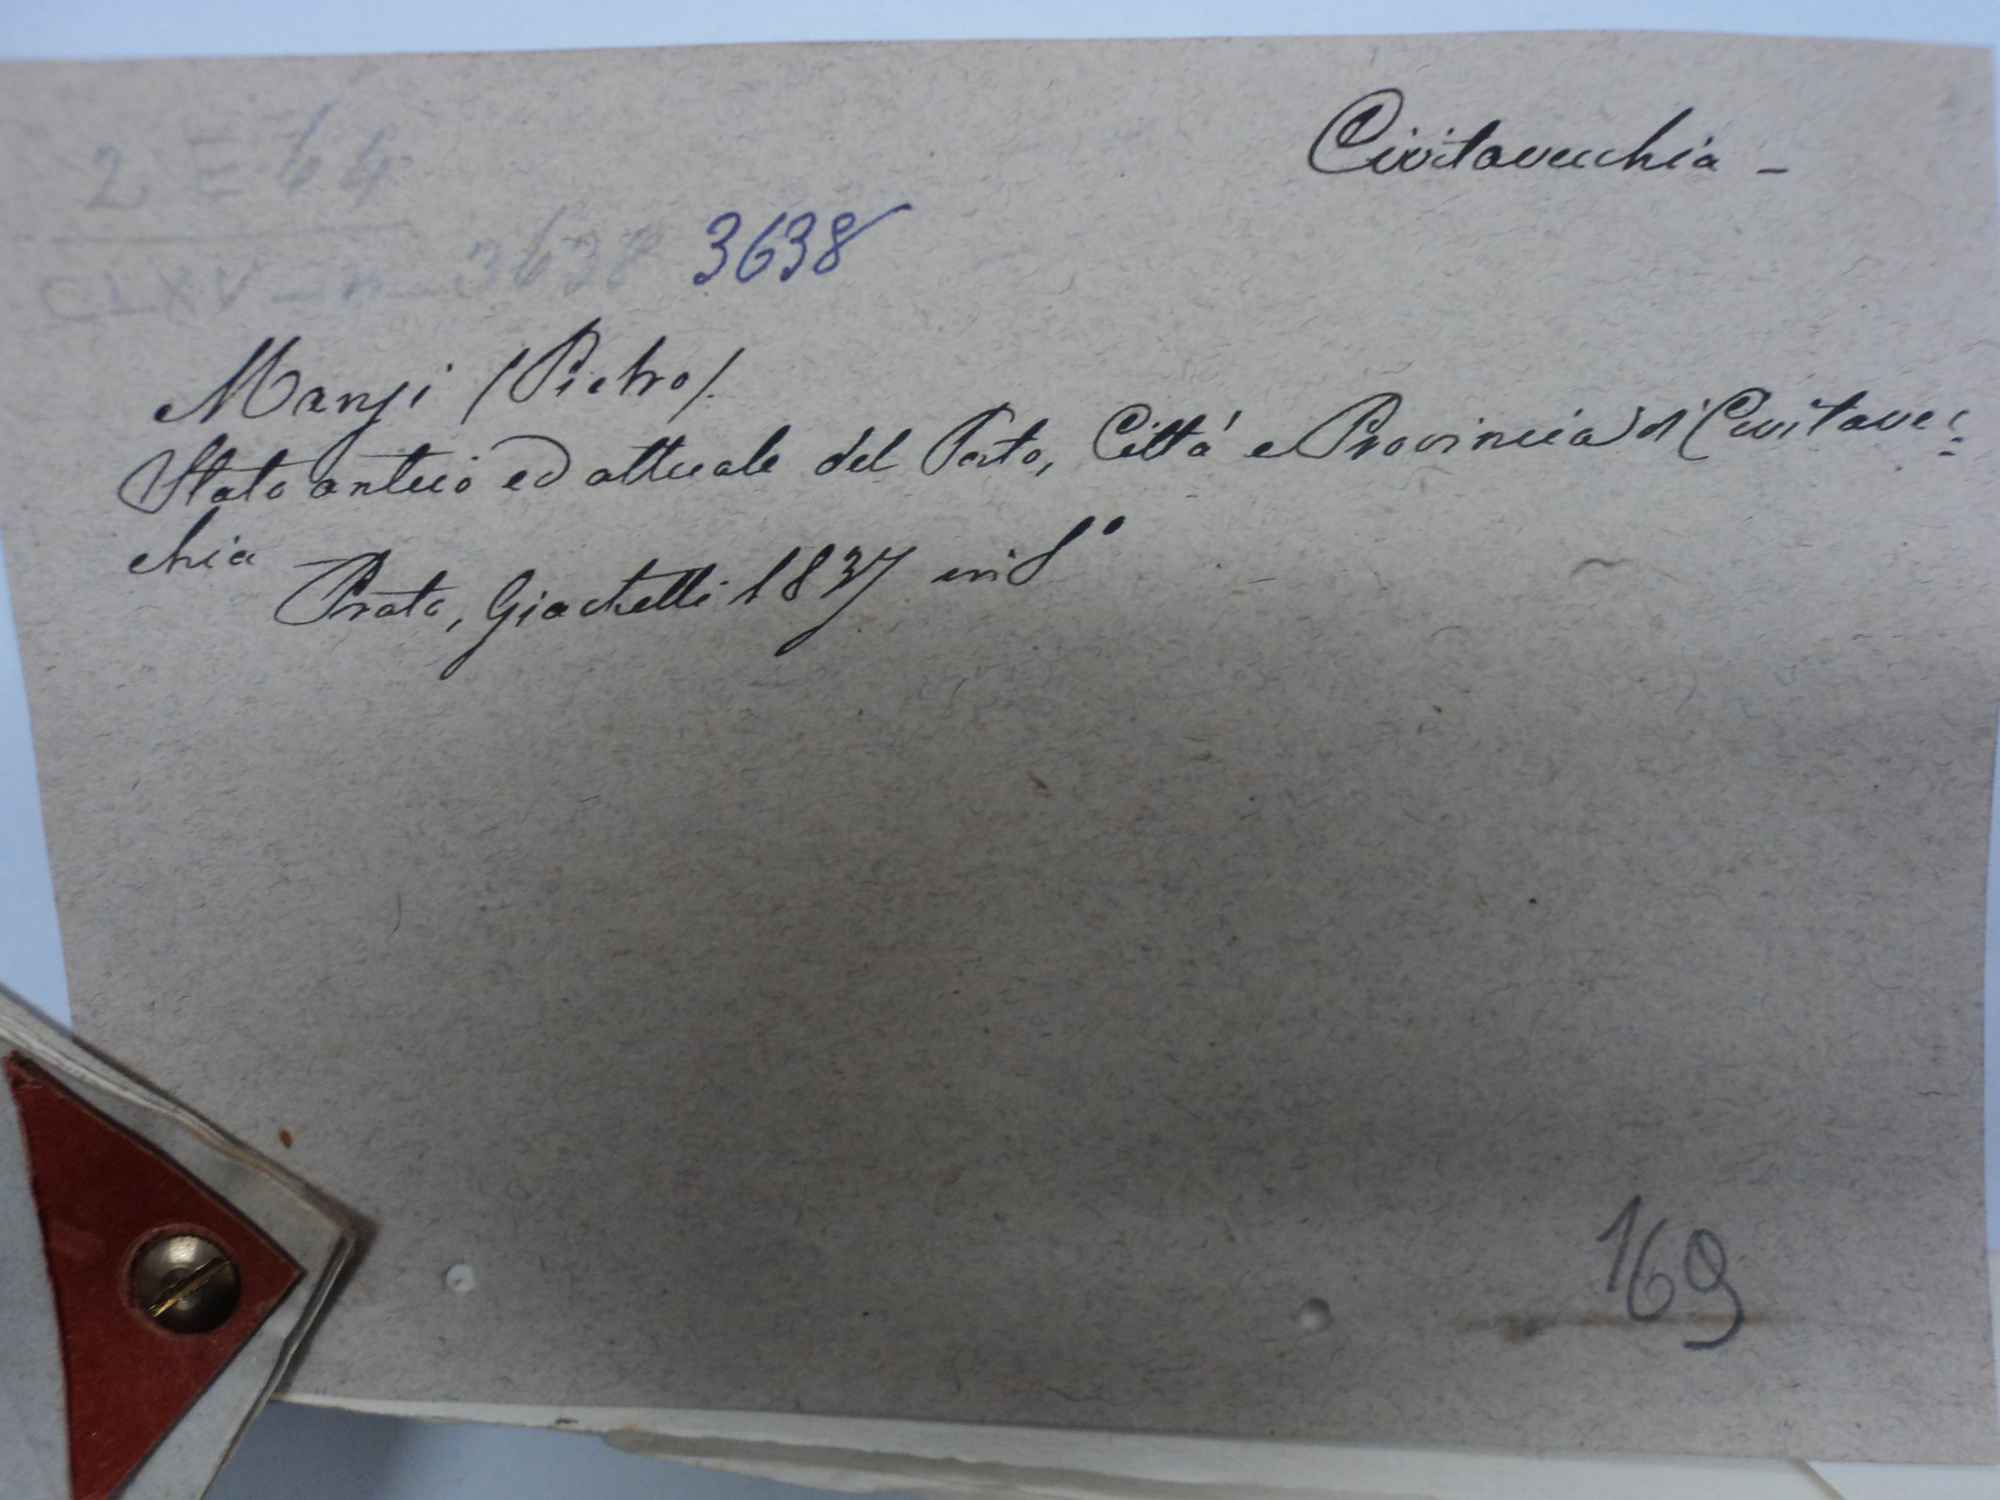 Civitavecchia -
2 E 44
CLXV - n - 3638 3638
Manzi (Pietro).
Stato antico ed attuale del Porto, Città e Provincia di Civitavec=
chia
Prato, Giachetti 1837 in 8°
169